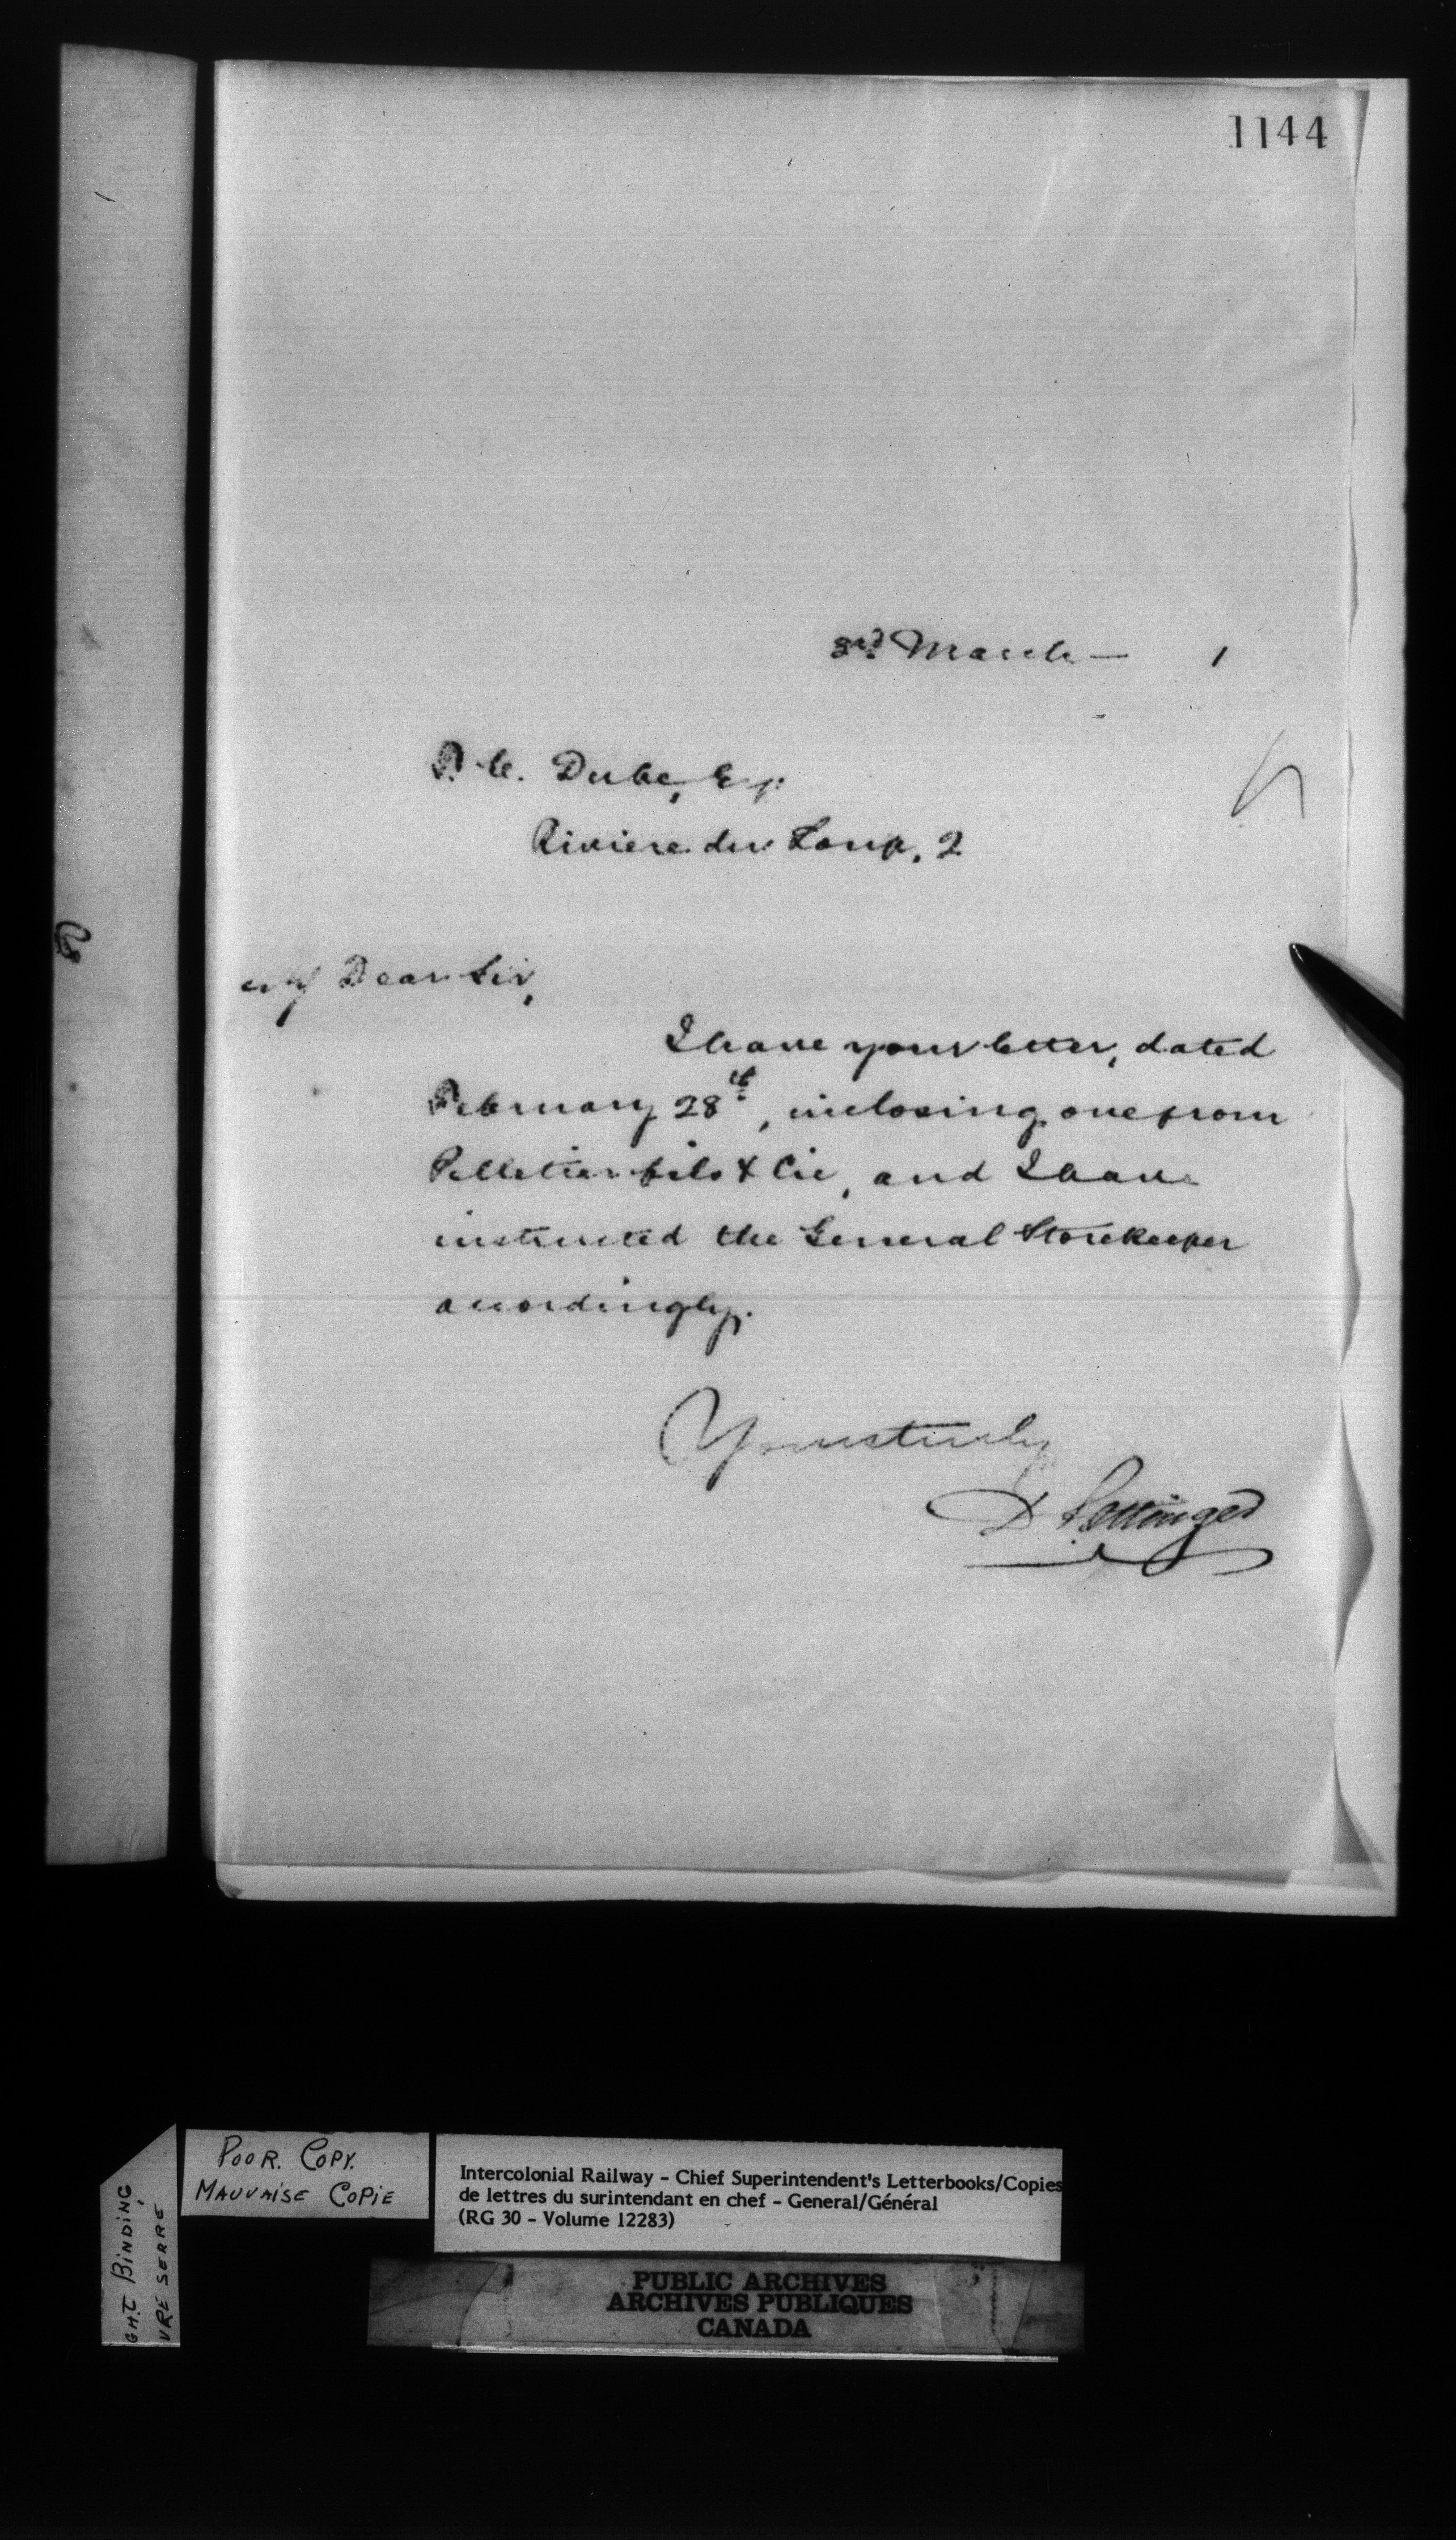 1144
3rd March — 1
P. C. Dube, Esq.
Riviere du Loup, 2
My Dear Sir,
I have your letter, dated
February 28th, inclosing one from
Pelletier fils & Cie, and I have
instructed the General Storekeeper
accordingly.
Yours truly
D Pottinger
POOR. COPY.
MAUVAISE COPIE
GHT BINDING
VRE SERRE
Intercolonial Railway - Chief Superintendent's Letterbooks/Copies
de lettres du surintendant en chef - General/Général
(RG 30 - Volume 12283)
PUBLIC ARCHIVES
ARCHIVES PUBLIQUES
CANADA